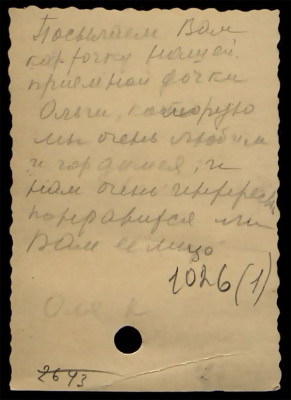 Посылаем Вам
карточку нашей
приемной дочки
Ольги, которую
мы очень любим
и гордимся, и
нам очень интерес
понравится ли
Вам ее лицо
1026(1)
Оля
2643